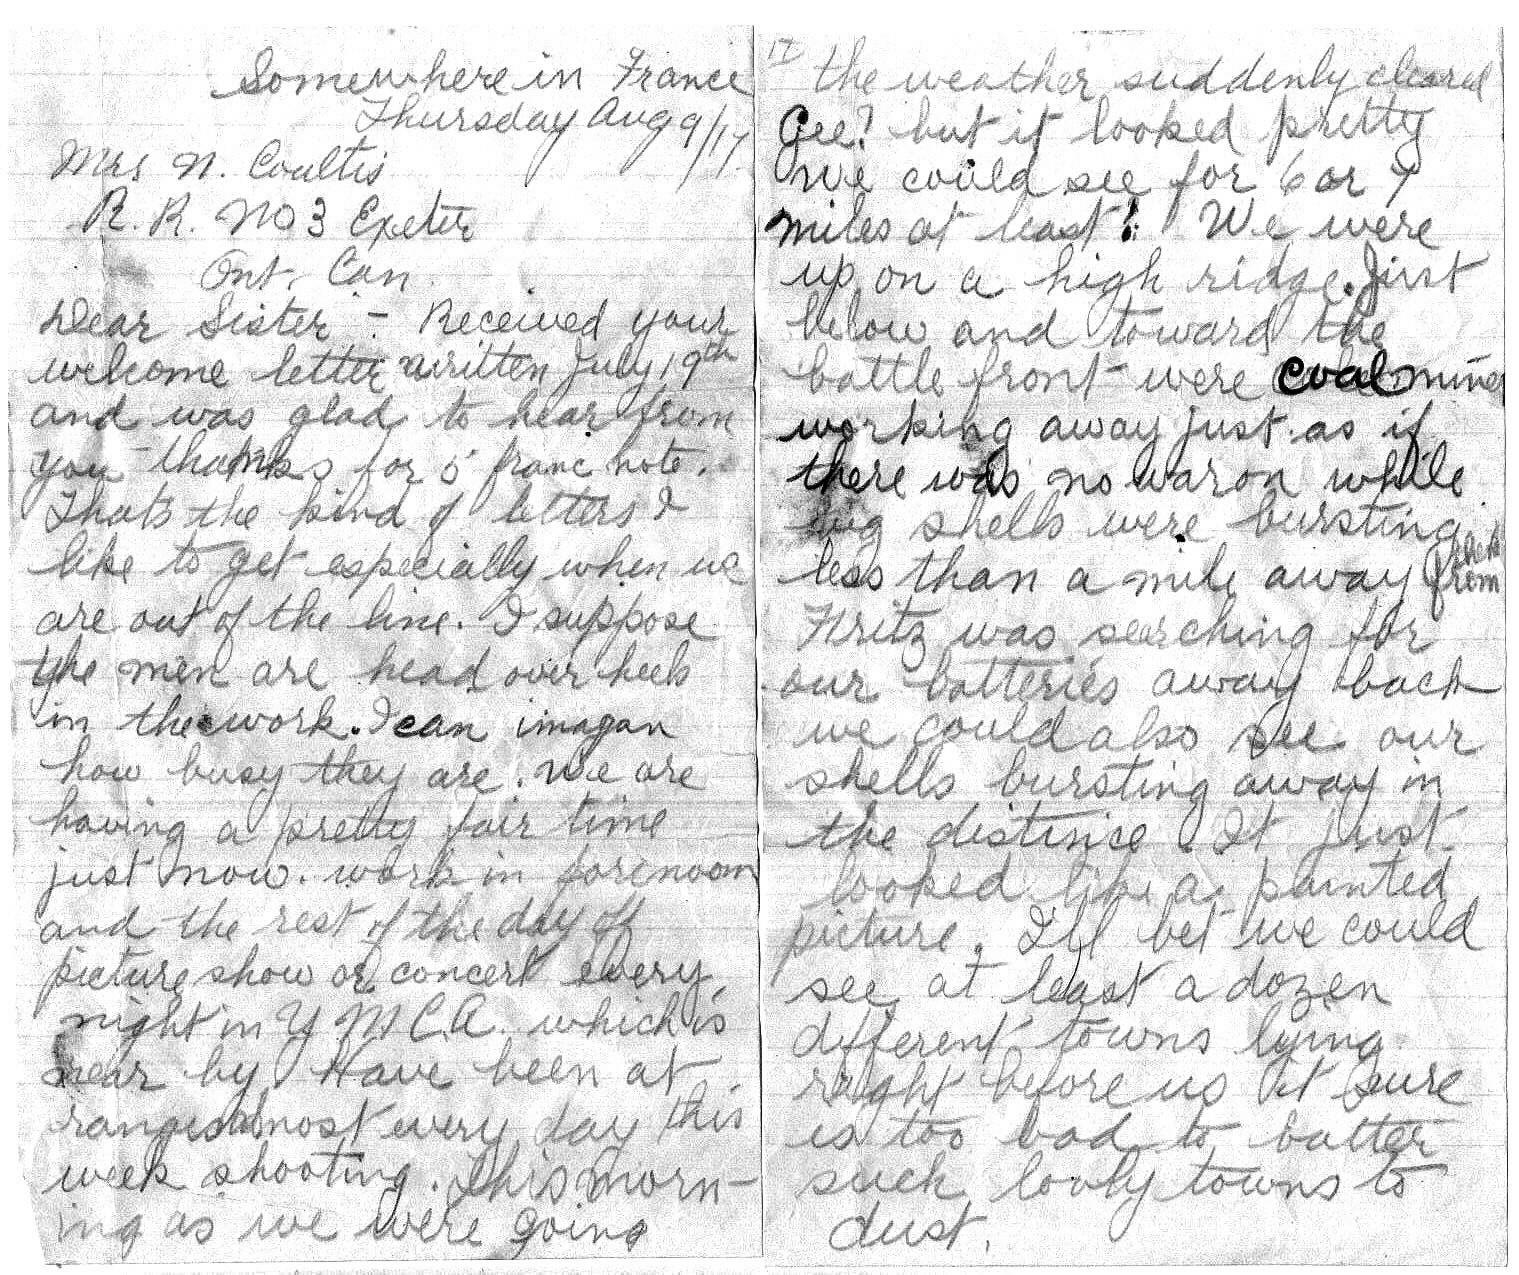 Somewhere in France
Thursday Aug 9/17
Mrs N. Coultis
R. R. No 3 Exeter
Ont. Can.
Dear Sister - Received your
welcome letter written July 19th
and was glad to hear from
you thanks for 5 franc note.
Thats the kind of letters I
like to get especially when we
are out of the line. I suppose
the men are head over heels
in the work. I can imagan
how busy they are. We are
having a pretty fair time
just now. work in forenoon
and the rest of the day of
picture show or concert every
night in Y M C.A. which is
near by Have been at
ranges almost every day this
week shooting. This morn-
ing as we were going
II
the weather suddenly cleared
Gee! but it looked pretty
we could see for 6 or 7
miles at least! We were
up on a high ridge. Just
below and toward the
battle front were coal mines
working away just as if
there was no war on while
big shells were bursting
less than a mile away from
Fritz was searching for
our batteries away back
we could also see our
shells bursting away in
the distince. It just
looked like a painted
picture. I'll bet we could
see at least a dozen
different towns lying
right before us it sure
is too bad to batter
such lovly towns to
dust.